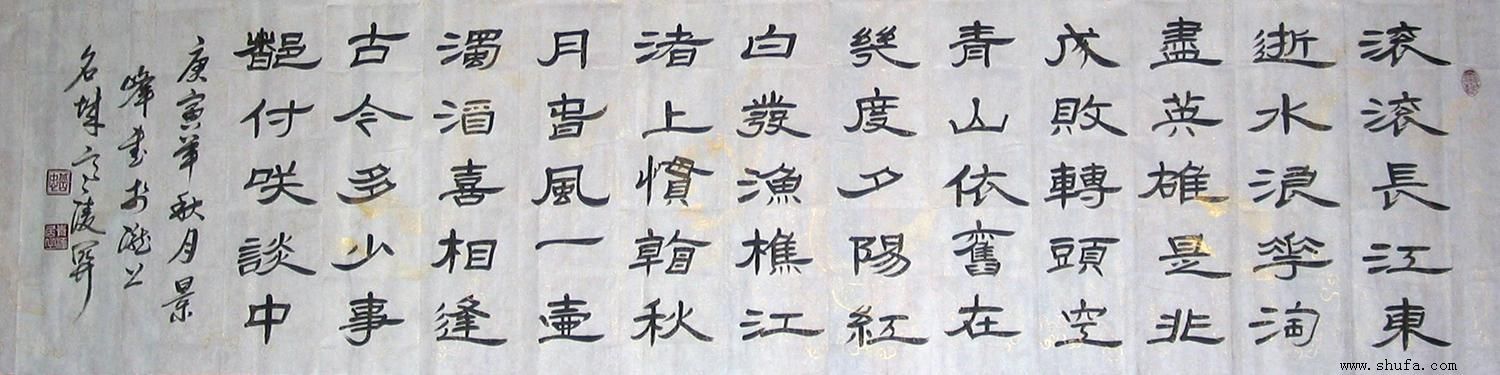 滚滚長江東
逝水浪花淘
盡英雄是非
成敗轉頭空
青山依舊在
幾度夕陽紅
白發漁樵江
渚上慣看秋
月春風一壺
濁酒喜相逢
古今多少事
都付咲談中
庚寅年秋月景
峰書於
名城
www.shufa.com